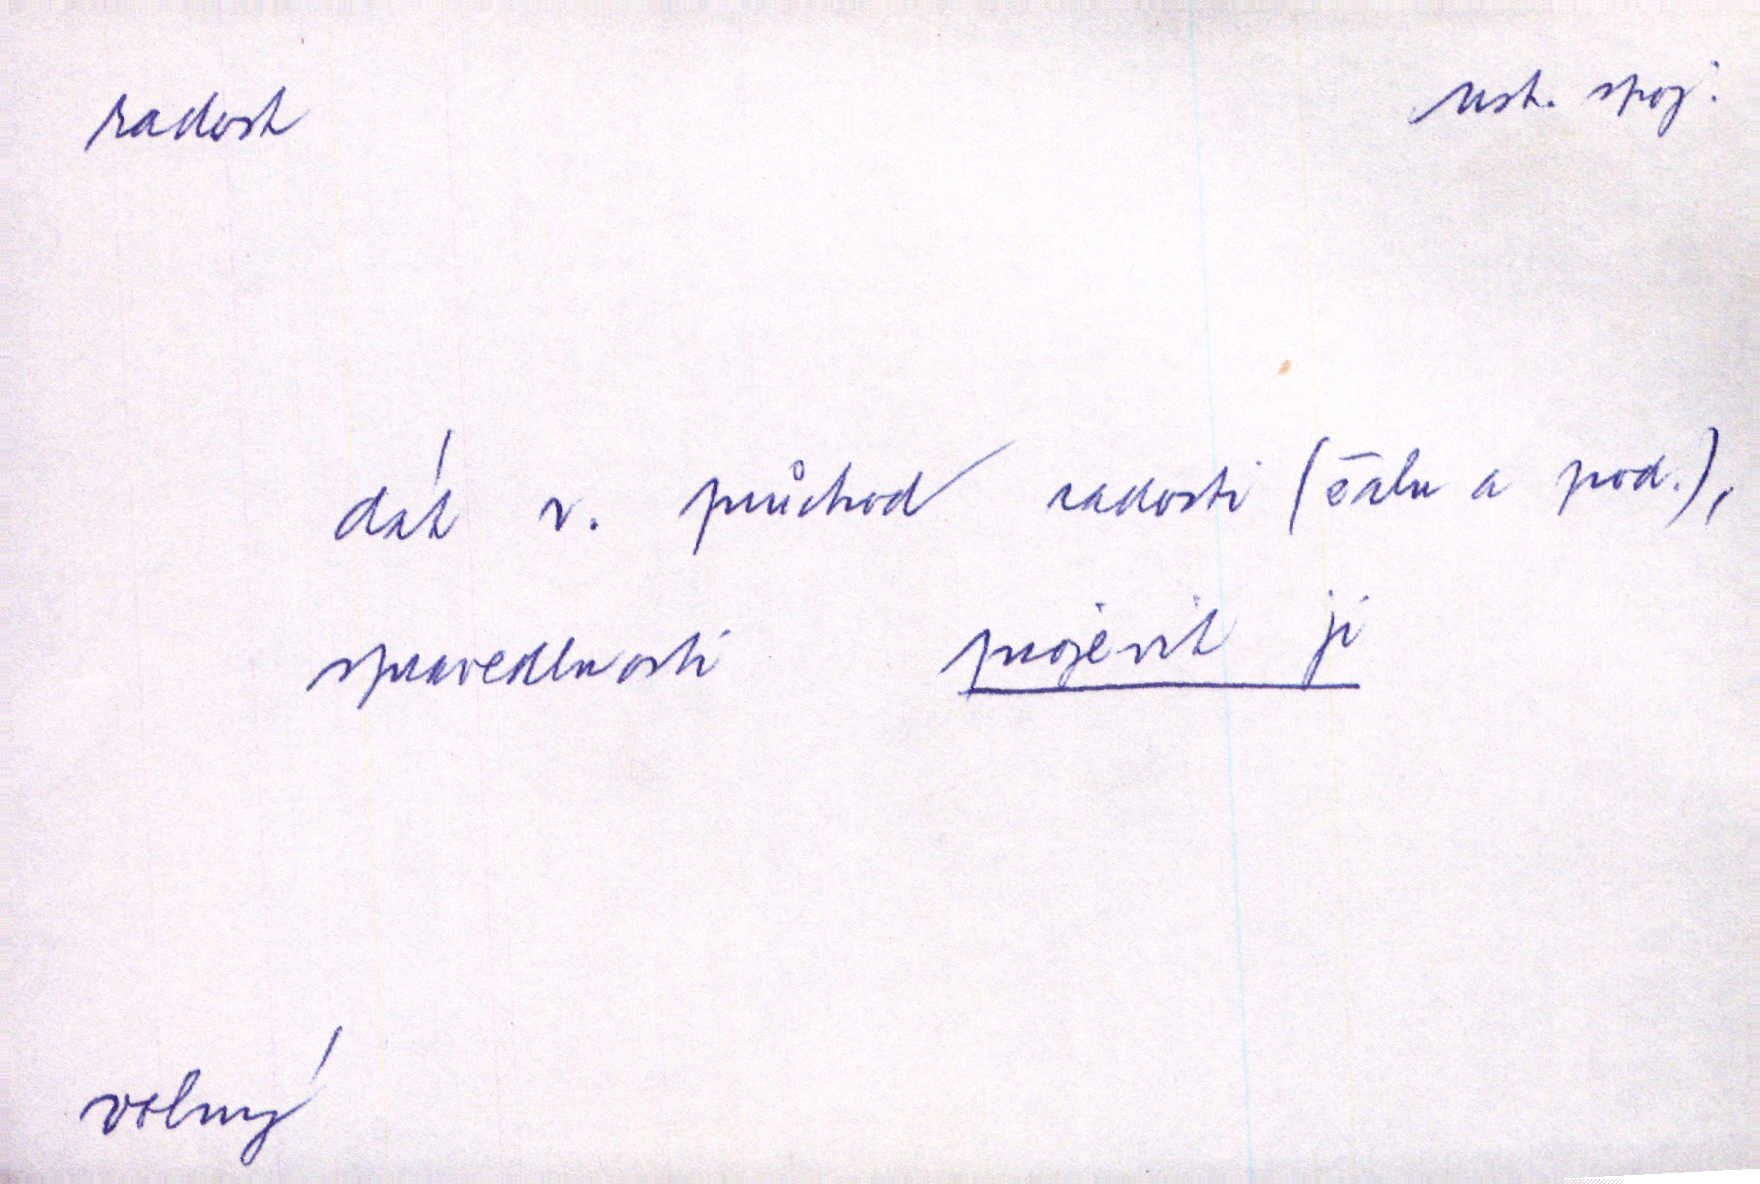 radost ust. spoj.
dát v. průchod radosti (žalu a pod.),
spravedlnosti projevit ji
volný